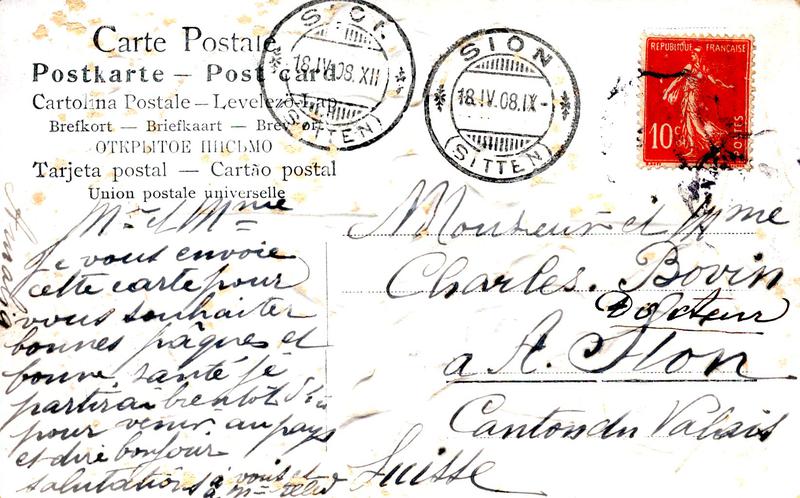 Carte Postale
Postkarte — Post card
Cartolina Postale — Levelező-Lap
Brefkort — Briefkaart — Brevkort
ОТКРЫТОЕ ПИСЬМО
Tarjeta postal — Cartão postal
Union postale universelle
SION
18.IV.08.XII
(SITTEN)
SION
18.IV.08.IX-
(SITTEN)
REPUBLIQUE FRANÇAISE
10 c
POSTES
Mr et Mme
Je vous envoie
cette carte pour
vous souhaiter
bonnes pâques et
bonne santé je
partirai bientôt
pour venir au pays
et dire bonjour
salutations à vous et
à Mme
Monsieur et Mme
Charles. Bovin
Docteur
a St. Sion
Canton du Valais
Suisse